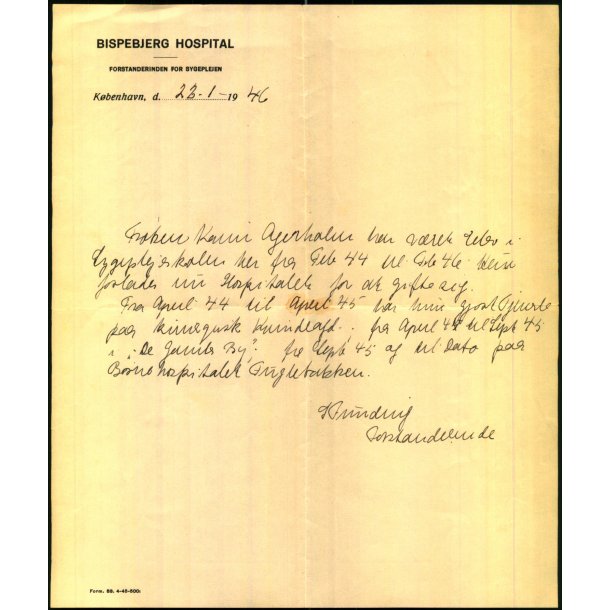 BISPEBJERG HOSPITAL
FORSTANDERINDEN FOR SYGEPLEJEN
København, d. 23-1-1946
Frøken Karin Agerholm har været Elev i
Sygeplejeskolen her fra Feb 44 til Feb 46. Hun
forlader nu Hospitalet for at gifte sig.
Fra April 44 til April 45 har hun gjort Tjeneste
paa kirurgisk Kvindeafd. fra April 45 til Sept 45
i "De Gamles By". fra Sept 45 og til Dato paa
Børnehospitalet Fuglebakken.
Forstanderinde
Form. 88. 4-45-500: